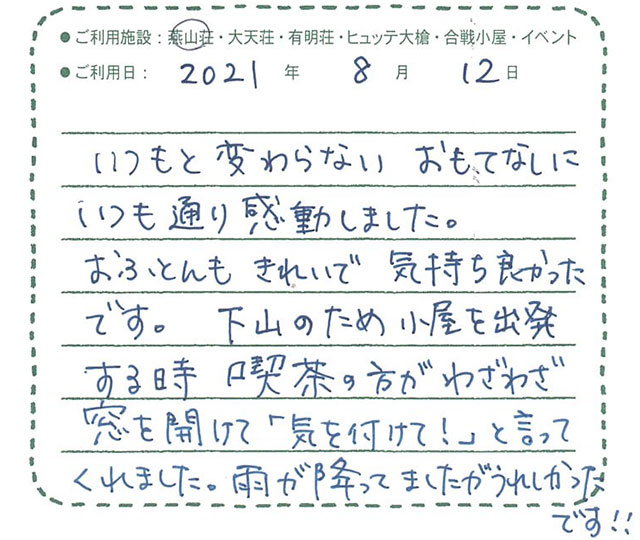 ●ご利用施設：燕山荘・大天荘・有明荘・ヒュッテ大槍・合戦小屋・イベント
●ご利用日： 2021 年 8 月 12 日
いつもと変わらない おもてなしに
いつも通り感動しました。
おふとんも きれいで 気持ち良かった
です。 下山のため 小屋を出発
する時 喫茶の方が わざわざ
窓を開けて「気を付けて！」と言って
くれました。雨が降ってましたがうれしかった
です!!